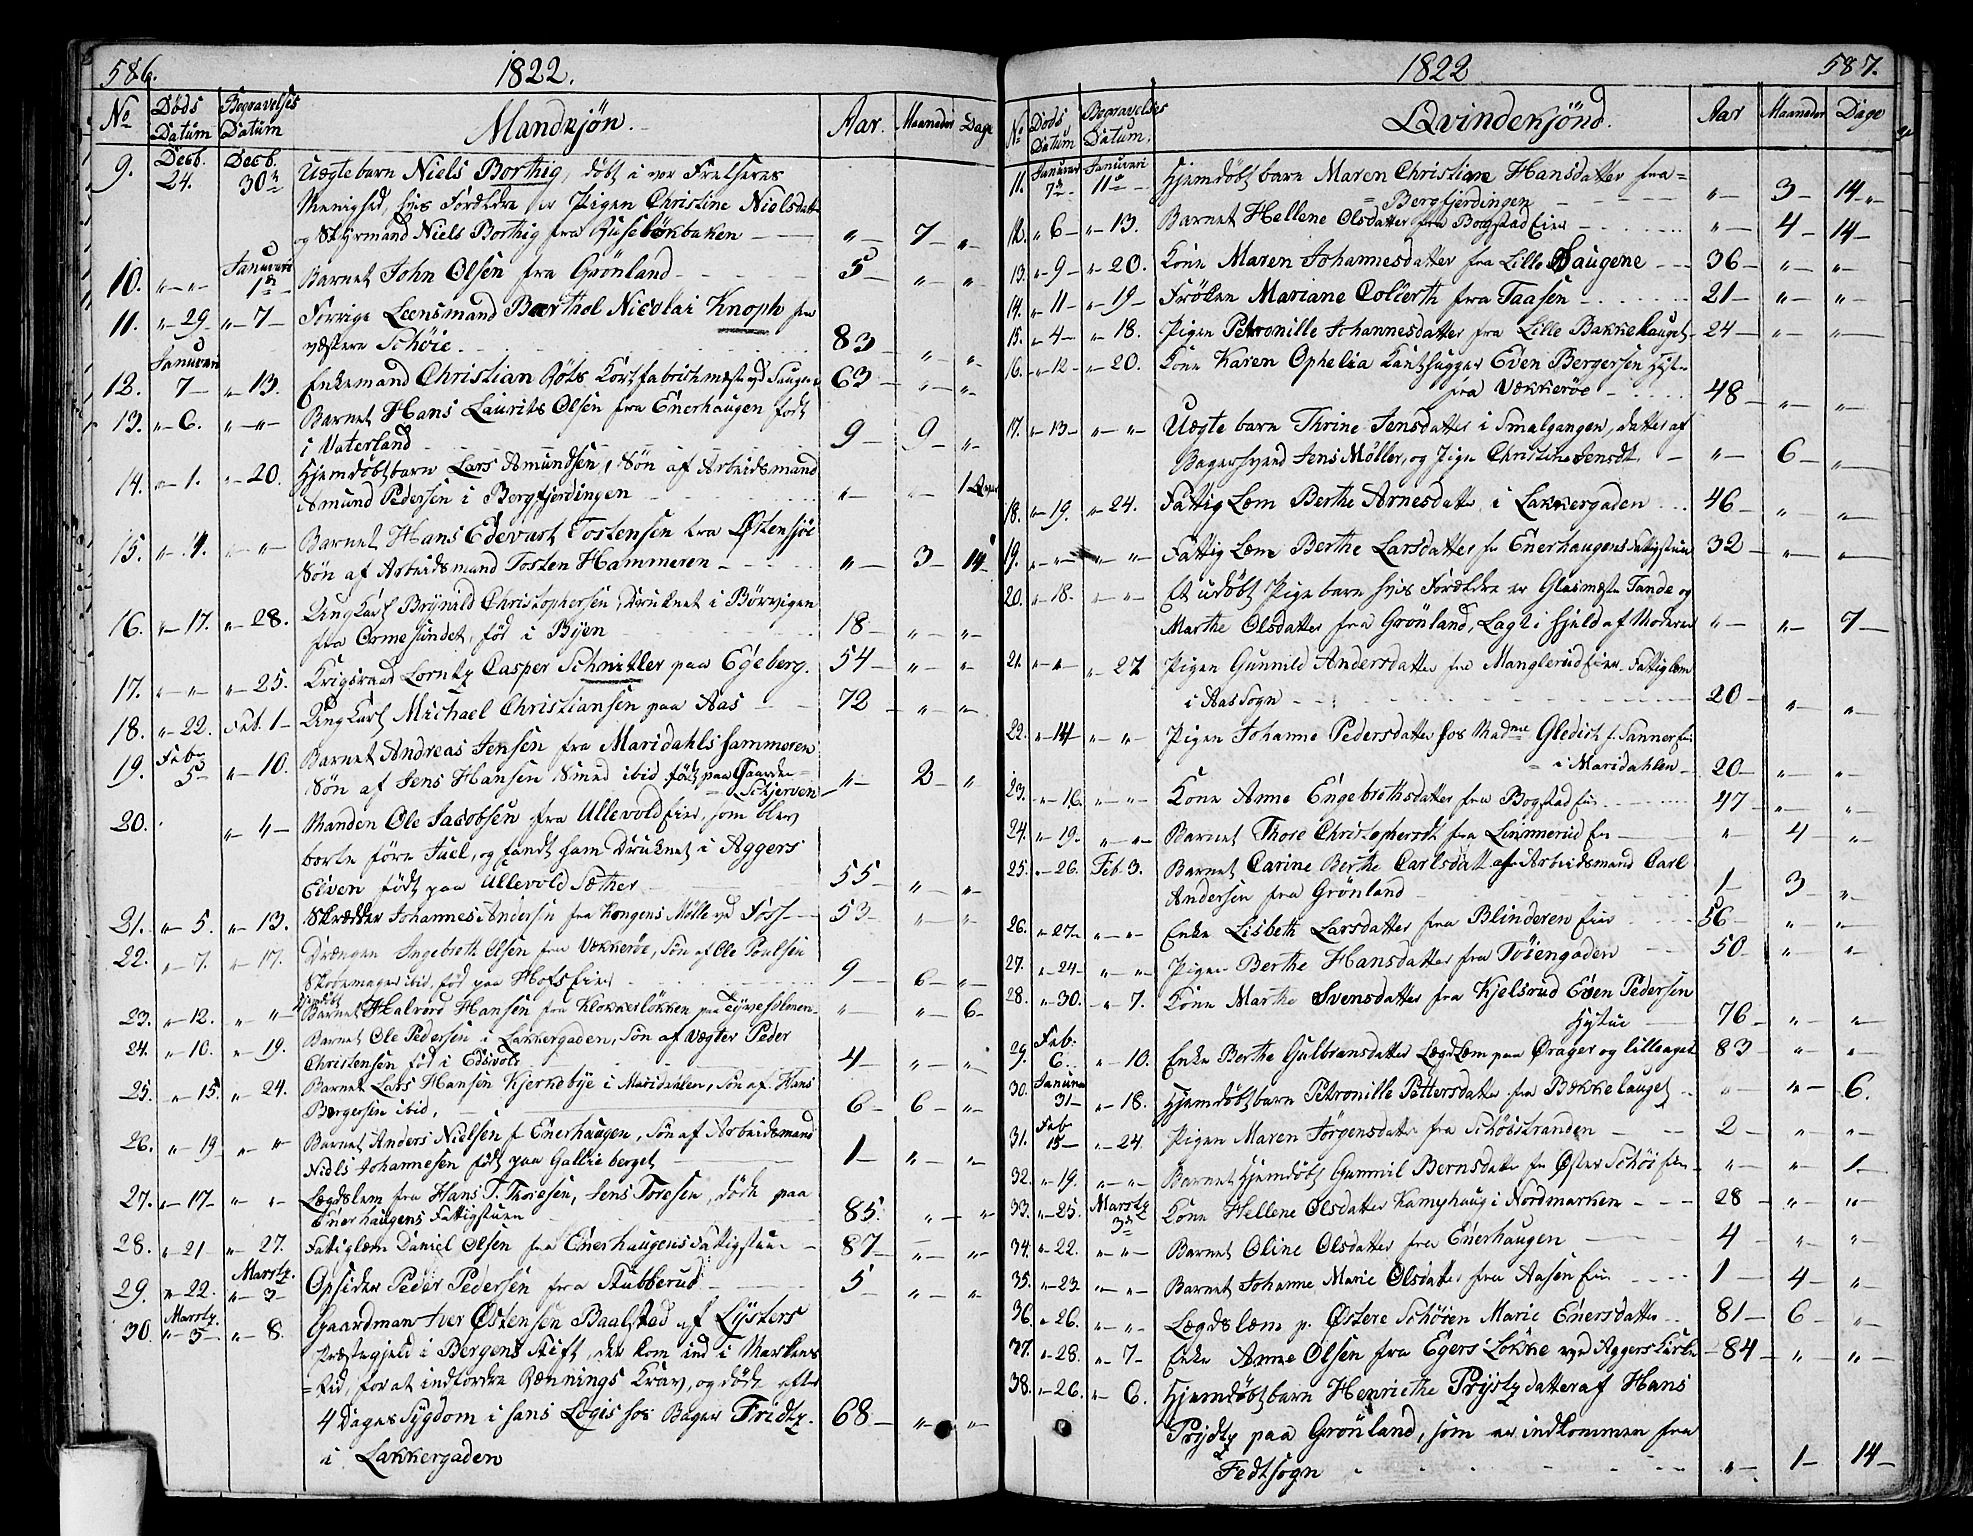 586.
1822.
No Døds Datum Begravelses Datum Mandkjøn. Aar. Maaneder Dage
9. Decb. 24. Decb. 30te Uægte barn Niels Borthig, døbt i vor Frelseres
Menighed, hvis Forældre er Pigen Christine Nielsdatter
og Styrmand Niels Borthig fra Ruseløkbaken — „ — 7 — „
10. „ — „ — Januari 1te Barnet John Olsen fra Grønland 5 — „ — „
11. „ — 29 „ — 7 — Forrige Leensmand Barthol Nicolai Knoph fra
væstere Schøie 83 — „ — „
12. Januari 7 — „ — 13. Enkemand Christian Kortfabrichmæster ved Saugene 63 — „ — „
13. „ — 6. „ — „ — Barnet Hans Laurits Olsen fra Enerhaugen født
i Vaterland 9 — 9 — „
14. „ — 1. „ — 20. Hjemdøbt barn Lars Amundsen, Søn af Arbeidsmand
Amund Pedersen i Bergfjerdingen „ — „ — 1
15. „ — 4. „ — „ — Barnet Hans Edevart Tostensen fra Østensjøe
Søn af Arbeidsmand Tosten Hammeren „ — 3 — 14
16. „ — 17. „ — 28. Ung Karl Brynild Christophersen, druknet i Børvigen
fra Ormesundet, fød i Byen 18 — „ — „
17. „ — „ „ — 25. Krigsraad Lorntz Casper Schnitler paa Egeberg. 54 — „ — „
18. „ — 22. Feb. 1 — Ung Karl Michael Christiansen paa Aas 72 „ — „
19. Feb. 5 — „ — 10. Barnet Andreas Jensen fra Maridahls hammeren
Søn af Jens Hansen Smed ibid født paa Gaarden
Skjerven „ — 2 — „
20. „ — „ — Manden Ole Jacobsen fra Ullevold Eier, som blev
borte førn Juel, og fandt ham druknet i Aggers
Elven født paa Ullevold Sæther 55 — „ — „
21. „ — 5. „ — 13. Skrædder Johannes Andersen fra Kongens Mølle ved Foss 53 — „ — „
22. „ — 7. „ — 17. Drængen Ingebreth Olsen fra Vækkerøe, Søn af Ole Poulsen
Skoemager ibid, fød paa Hofs Eier 9 — 6 — „
23. „ — 12. „ — „ Hjemdøbt Barnet Halvord Hansen fra Klokkerløkken paa Tyveholmen „ — „ — 6 —
24. „ — 10. „ — 19. Barnet Ole Pedersen i Lakkergaden, Søn af Vægter Peder
Christensen fød i Edsvold 4 — „ — „
25. „ — 15. „ — 24. Barnet Lars Hansen Kjerkebye i Maridahlen, Søn af Hans
Bergersen ibid, 6 — 6 — „
26. „ — 19 „ — „ Barnet Anders Nielsen f. Enerhaugen, Søn af Arbeidsmand
Niels Johannesen født paa Gallieberget 1 — „ — „
27. „ — 17 — „ — „ Lægdslem fra Hans T. Thoresen, Jens Toresen, døde paa
Enerhaugens Fattigstuen 85. „ — „
28. „ — 21 — „ — 27. Fattiglæm Daniel Olsen fra Enerhaugens Fattigstue 87 — „ — „
29. „ — 22. Martz. „ — 3 — Opsidder Peder Pedersen fra Stubberud 5 „ — „
30. Martz. „ — 5 — „ — 8. Gaardmand Iver Østensen Baalstad af Lysters
Præstegjeld i Bergens Stift, der kom ind i Markens
Tid, for at indfordre Pennings Krav, og døde efter
4 Dages Sygdom i hans Logis hos Bager Fridtz. 68 — „ — „
i Lakkergaden
1822
587.
No Døds Datum Begravelses Datum, Qvindekjønd. Aar Maaneder Dage
11. Januari 7te — Januari 11te — Hjemdøbt barn Maren Christiane Hansdatter fra
Bergfjerdingen „ — 3 — 14 —
12. „ 6 — „ — 13. Barnet Hellene Olsdatter fra Bogstad Eier „ — 4 — 14 —
13. „ — 9 — „ — 20. Kone Maren Johannesdatter fra Lille Saugene 36 — „ — „
14. „ — 11 — „ — 19 — Frøken Mariane Collerth fra Taasen 21 — „ — „
15. „ — 4 — „ — 18. Pigen Petronille Johannesdatter fra Lille Bakkehauget 24 — „ — „
16. „ — 12 — „ — 20. Kone Karen Ophelia Kanthugger Even Bergersen Hust.
fra Vækkerøe 48 — „ — „
17. „ — 13 — „ — „ Uægte barn Thrine Jensdatter i Smalgangen, datter af
Bagersvend Jens Møller, og Pige Christine Jensdt. „ — 6 — „
18. „ — 19. „ — 24. Fattig Læm Berthe Arnesdatter i Lakkergaden 46 — „ — „
19. „ — „ — „ — „ Fattig Læm Berthe Larsdatter fr Enerhaugens Fattigstue 32 — „ — „
20. „ — 18. „ — „ Et udøbt Pigebarn hvis Forældre er Glasmæster Tande og
Marthe Olsdatter fra Grønland, Lagt i hjel af Moderen „ — „ — 7 —
21. „ — „ — „ — 27 Pigen Gunnild Andersdatter fra Manglerud Eier. Fattiglem
i Aas Sogn 20 — „ — „
22. „ — 14 „ — „ Pigen Johanne Pedersdatter hos Madme Gledich f. Sanner Eie
i Maridahlen 20 — „ — „
23. „ — 16. „ — „ Kone Anne Engebrethsdatter fra Bogstad Eie 47 — „ — „
24. „ — 19. „ — „ Barnet Thore Christophersdt fra Linnerud Eie „ — 4 — „
25. „ — 26. Feb. 3. Barnet Carine Berthe Carlsdatt af Arbeidsmand Carl
Andersen fra Grønland 1 — 3 — „
26. „ — 27 — „ — „ Enke Lisbeth Larsdatter fra Blinderen Eie 56 — „ — „
27. „ — 24 — „ — „ Pigen Berthe Hansdatter fra Tøiengaden 50 — „ — „
28. „ — 30. „ — 7. Kone Marthe Svensdatter fra Kjelsrud Even Pedersen
Hustrue 76 — „ — „
29. Feb. 6. „ — 10. Enke Berthe Gulbransdatter LægdLæm paa Ørager og lilleaget 83 — „ — „
30. Januari 31 — „ — 18. Hjemdøbt barn Petronille Pettersdatter fra Bækkelauget „ — „ — 6.
31. Feb 15 — „ — 24. Pigen Maren Jørgensdatter fra Schøistranden 2 — „ — „
32. „ — 19. „ — „ Barnet Hjemdøbt Gunnil Bernsdatter fra Øster Schøi Eie „ — „ — 1 —
33. „ — 25. Martz 3de Kone Hellene Olsdatter Kamphaug i Nordmarken 28 „ — „
34. „ — 22. „ — „ Barnet Oline Olsdatter fra Enerhaugen 4 — „ — „
35. „ — 23. „ — „ Barnet Johanne Marie Olsdatter fra Aasen Eie 1 — 4 — „
36. „ — 26. „ — „ Lægdslæm p. Østere Schøien Marie Enersdatter 81 — 6 — „
37. „ — 28. „ — 7 — Enke Anne Olsen fra Egers Løkke ved Aggers Kirke 84 — „ — „
38. „ — 26. „ — 6. Hjemdøbt barn Henriethe Prystz datter af Hans
Prydtz paa Grønland, som er indkommen fra
Fedtsogn „ — 1 — 14 —